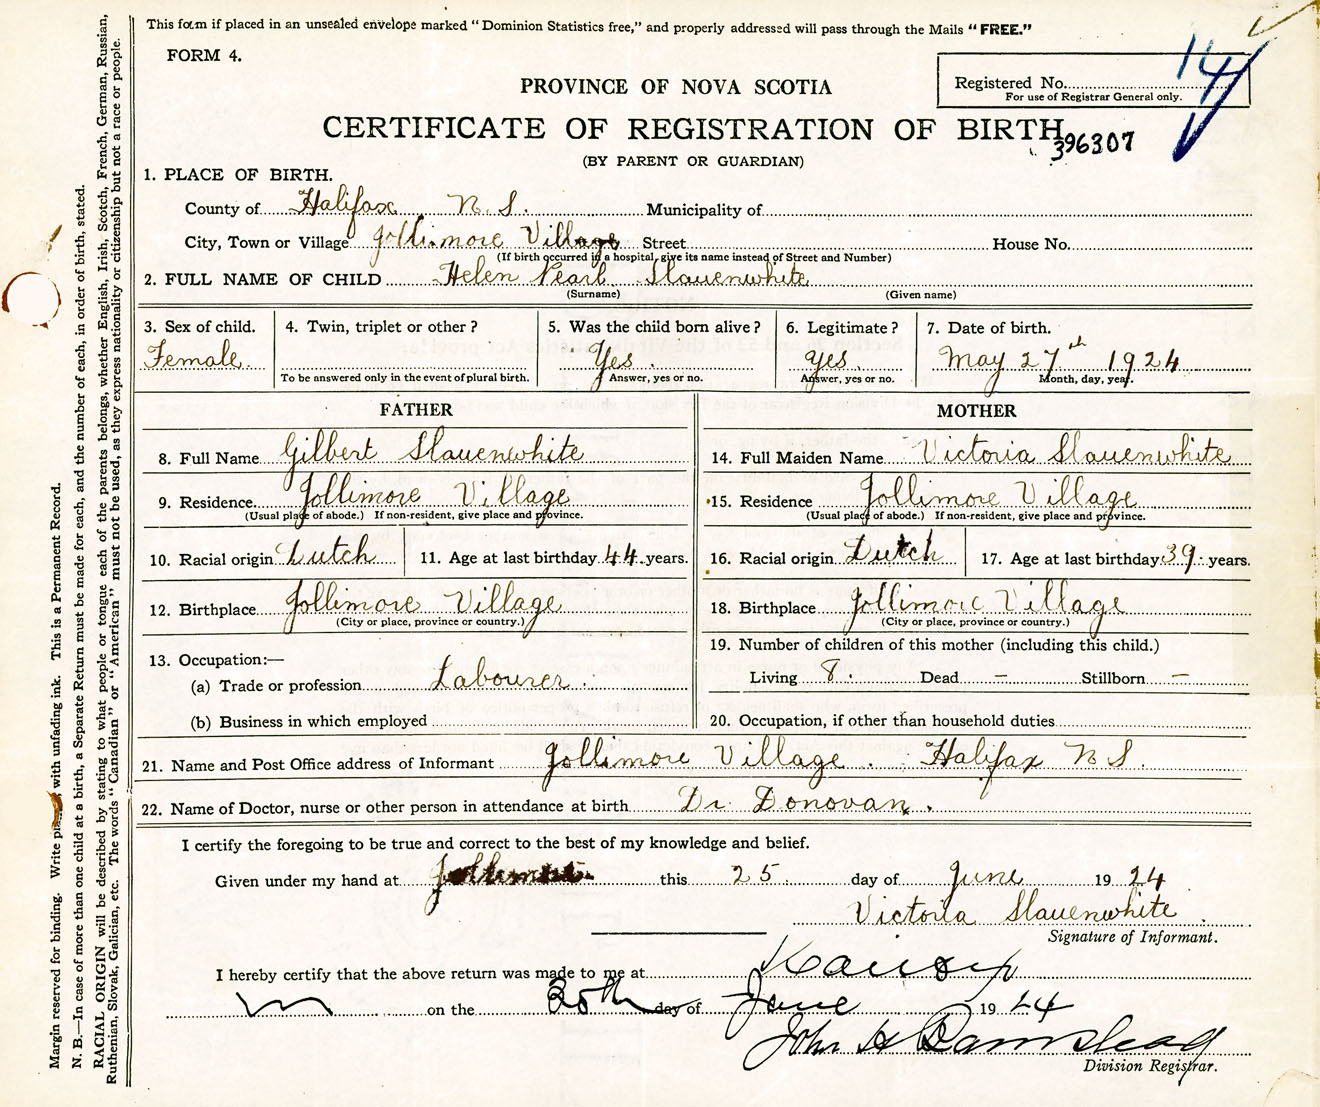 This form if placed in an unsealed envelope marked "Dominion Statistics free," and properly addressed will pass through the Mails "FREE."
FORM 4.
Registered No.
For use of Registrar General only.
PROVINCE OF NOVA SCOTIA
CERTIFICATE OF REGISTRATION OF BIRTH
396307
(BY PARENT OR GUARDIAN)
1. PLACE OF BIRTH.
County of Halifax N.S. Municipality of
City, Town or Village Jollimore Village Street House No.
(If birth occurred in a hospital, give its name instead of Street and Number)
2. FULL NAME OF CHILD Helen Pearl Slauenwhite
(Surname) (Given name)
3. Sex of child. 4. Twin, triplet or other? 5. Was the child born alive? 6. Legitimate? 7. Date of birth.
Female. Yes. Yes. May 27th 1924
To be answered only in the event of plural birth. Answer, yes or no. Answer, yes or no. Month, day, year.
FATHER
8. Full Name Gilbert Slauenwhite
9. Residence Jollimore Village
(Usual place of abode.) If non-resident, give place and province.
10. Racial origin Dutch 11. Age at last birthday 44 years.
12. Birthplace Jollimore Village
(City or place, province or country.)
13. Occupation:—
(a) Trade or profession Labourer.
(b) Business in which employed
MOTHER
14. Full Maiden Name Victoria Slauenwhite
15. Residence Jollimore Village
(Usual place of abode.) If non-resident, give place and province.
16. Racial origin Dutch 17. Age at last birthday 39 years.
18. Birthplace Jollimore Village
(City or place, province or country.)
19. Number of children of this mother (including this child.)
Living 8. Dead — Stillborn —
20. Occupation, if other than household duties
21. Name and Post Office address of Informant Jollimore Village. Halifax N S.
22. Name of Doctor, nurse or other person in attendance at birth Dr. Donovan.
I certify the foregoing to be true and correct to the best of my knowledge and belief.
Given under my hand at this 25. day of June 1924
Victoria Slauenwhite.
Signature of Informant.
I hereby certify that the above return was made to me at
on the 30th day of June 1924
John H
Division Registrar.
Margin reserved for binding. Write with unfading ink. This is a Permanent Record.
N. B.—In case of more than one child at a birth, a Separate Return must be made for each, and the number of each, in order of birth, stated.
RACIAL ORIGIN will be described by stating to what people or tongue each of the parents belongs, whether English, Irish, Scotch, French, German, Russian,
Ruthenian, Slovak, Galician, etc. The words "Canadian" or "American" must not be used, as they express nationality or citizenship but not a race or people.